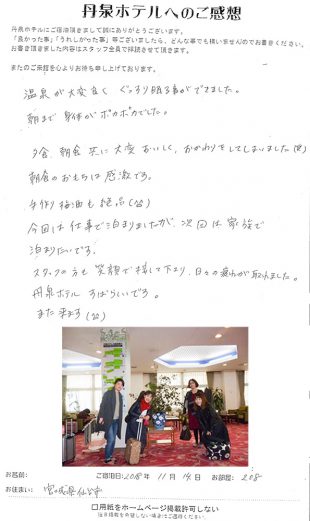 丹泉ホテルへのご感想
丹泉ホテルにご宿泊頂きまして誠にありがとうございます。
「良かった事」「うれしかった事」等ございましたら、どんな事でも構いませんのでお書きください。
お書き頂きました内容はスタッフ全員で拝読させて頂きます。
またのご来館を心よりお待ち申し上げております。
温泉が大変良く ぐっすり眠る事ができました。
朝まで身体がポカポカでした。
夕食、朝食 共に大変おいしく、おかわりをしてしまいました(笑)
朝食のおもちは感激です。
手作り梅酒も絶品(^^)
今回は仕事で泊まりましたが、次回は家族で
泊まりたいです。
スタッフの方も笑顔で接して下さり、日々の疲れが取れました。
丹泉ホテル すばらしいです。
また来ます(^^)
お名前:
ご宿泊日:2018年 11月 14日
お部屋: 208
お住まい: 宮城県仙台市
□用紙をホームページ掲載許可しない
(※掲載を希望しない場合はご選択ください。